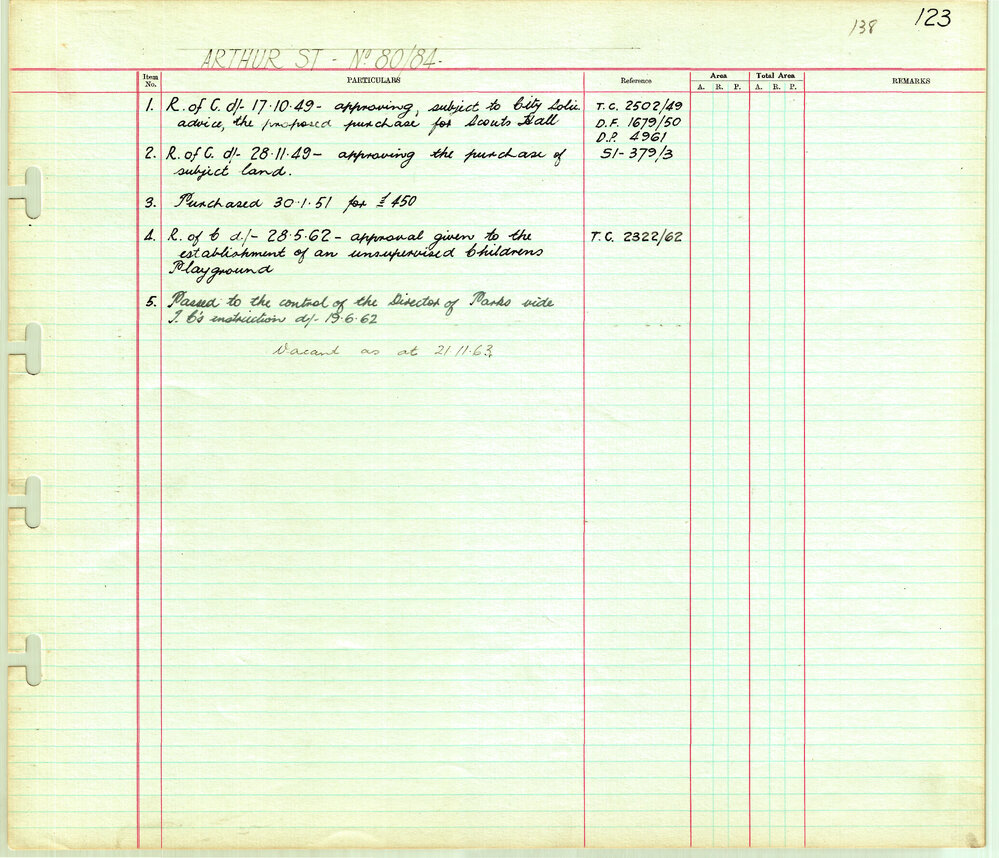 123
138
ARTHUR ST - No 80/84.
Item No. PARTICULARS Reference Area A. R. P. Total Area A. R. P. REMARKS
1. R. of C. d/- 17.10.49 - approving, subject to City Solic. T.C. 2502/49
advice, the proposed purchase for Scouts Hall D.F. 1679/50
D.P. 4961
2. R. of C. d/- 28.11.49 - approving the purchase of S1-379/3
subject land.
3. Purchased 30.1.51 for £450
4. R. of C d/- 28.5.62 - approval given to the T.C. 2322/62
establishment of an unsupervised Childrens
Playground
5. Passed to the control of the Director of Parks vide
T. C's instruction d/- 19.6.62
Vacant as at 21.11.63.